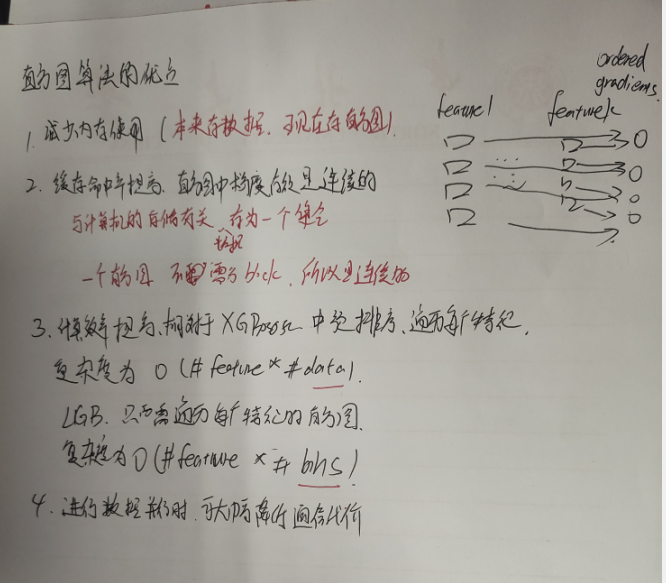 直方图算法的优点
1. 减少内存使用 (本来存数据, 现在存直方图).
2. 缓存命中率提高, 直方图中梯度存放是连续的
与计算机的存储有关 存为一个
一个直方图 不需要 block, 所以是连续的
3. 计算效率提高, 相对于 XGBoost 中预排序, 遍历每个特征,
复杂度为 O (# feature * # data).
LGB. 只需要遍历每个特征的直方图.
复杂度为 O (# feature * # bins)
4. 进行数据并行时, 可大幅降低通信代价
ordered
gradients.
feature1 feature k